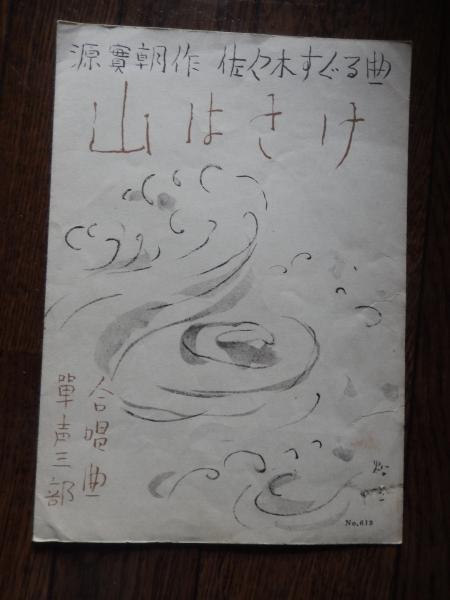 源實朝作 佐々木すぐる曲
山はさけ
合唱曲
單声三部
No.613